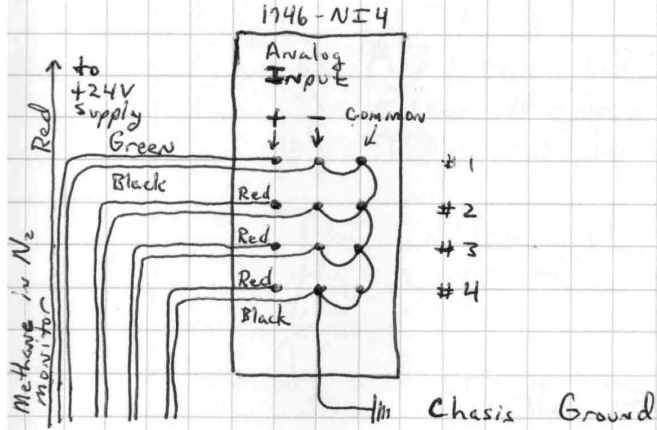 1746-NI4
Analog
Input
+ - Common
to
+24V
Supply
Red
Green
Black
Red
Red
Red
Black
#1
#2
#3
#4
Methane in N2
monitor
Chasis Ground